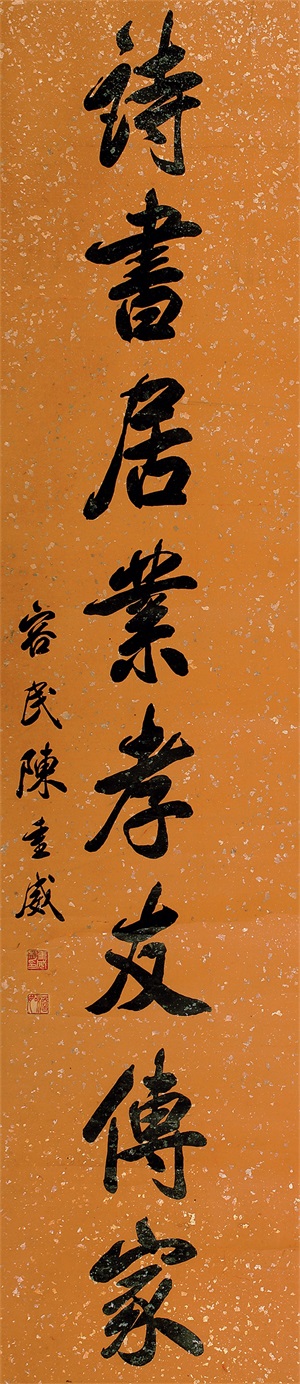 詩書居業孝友傳家
容民陳重威